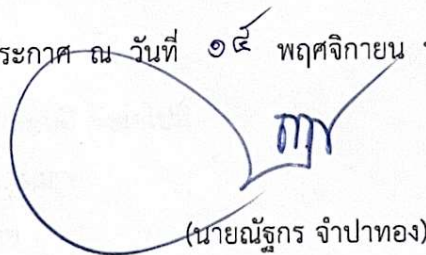 ระกาศ ณ วันที่ ๑๔ พฤศจิกายน
(นายณัฐกร จำปาทอง)